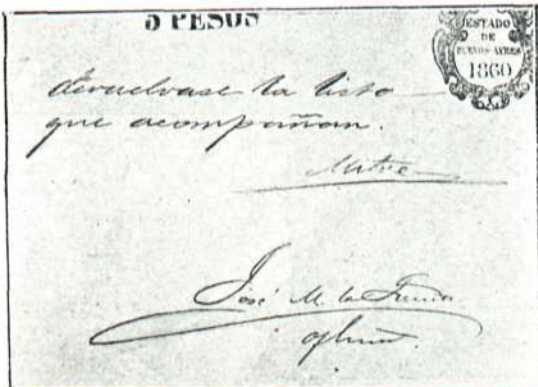 5 PESOS
ESTADO
DE
BUENOS AYRES
1860
devuelvase la lista
que acompañan.
Mitre
José M. la Fuente